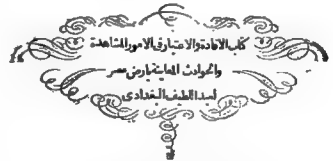 كتاب الافادة والاعتبار في الامور المشاهدة
والحوادث المعاينة بارض مصر
لعبد اللطيف البغدادى